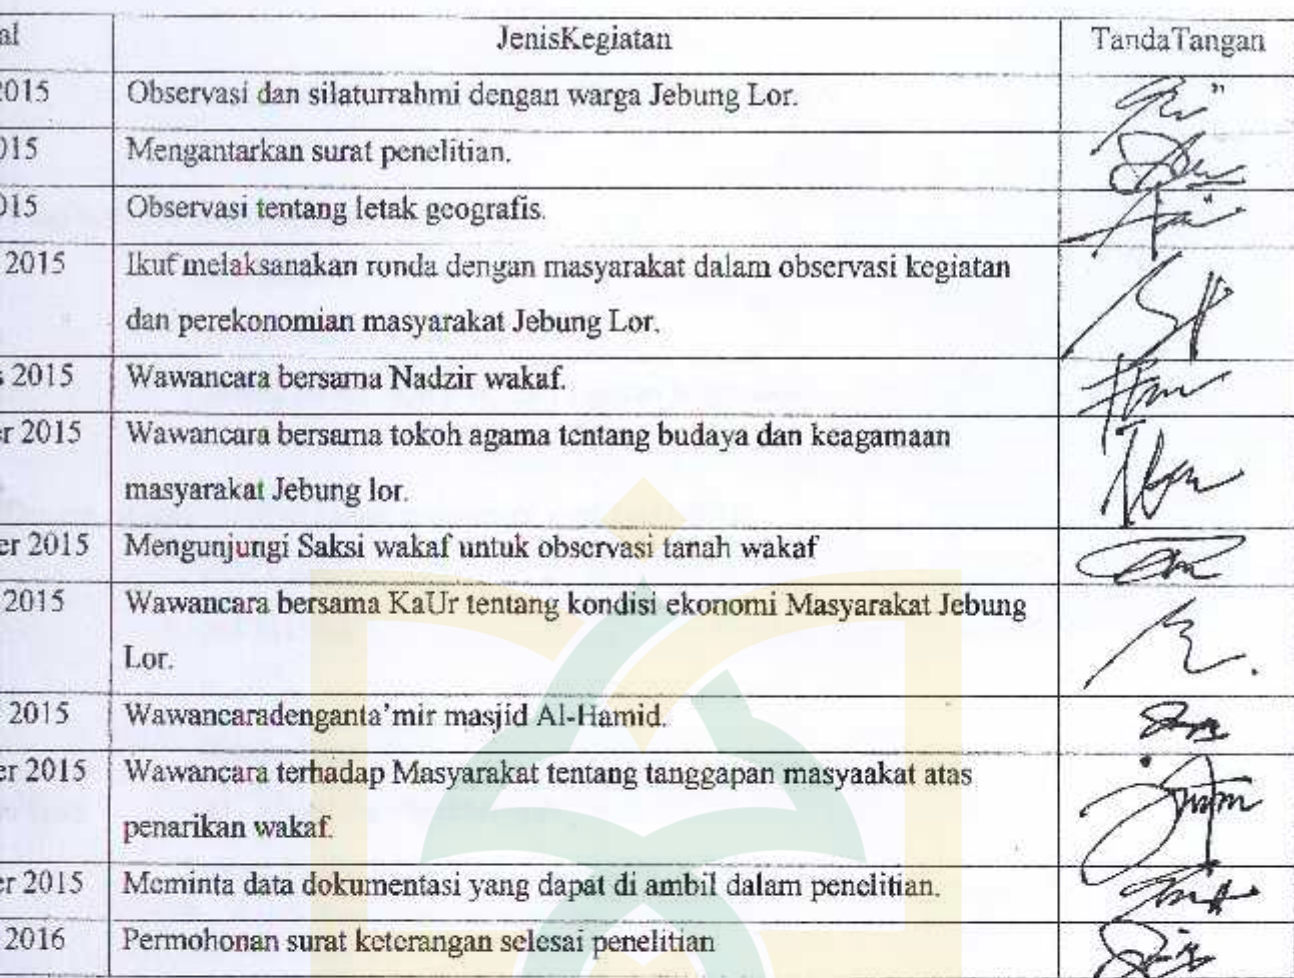 al JenisKegiatan TandaTangan
2015 Observasi dan silaturrahmi dengan warga Jebung Lor.
015 Mengantarkan surat penelitian.
015 Observasi tentang letak geografis.
2015 Ikut melaksanakan ronda dengan masyarakat dalam observasi kegiatan
dan perekonomian masyarakat Jebung Lor.
s 2015 Wawancara bersama Nadzir wakaf.
er 2015 Wawancara bersama tokoh agama tentang budaya dan keagamaan
masyarakat Jebung lor.
er 2015 Mengunjungi Saksi wakaf untuk observasi tanah wakaf
2015 Wawancara bersama KaUr tentang kondisi ekonomi Masyarakat Jebung
Lor.
2015 Wawancaradenganta'mir masjid Al-Hamid.
er 2015 Wawancara terhadap Masyarakat tentang tanggapan masyaakat atas
penarikan wakaf.
er 2015 Meminta data dokumentasi yang dapat di ambil dalam penelitian.
2016 Permohonan surat keterangan selesai penelitian